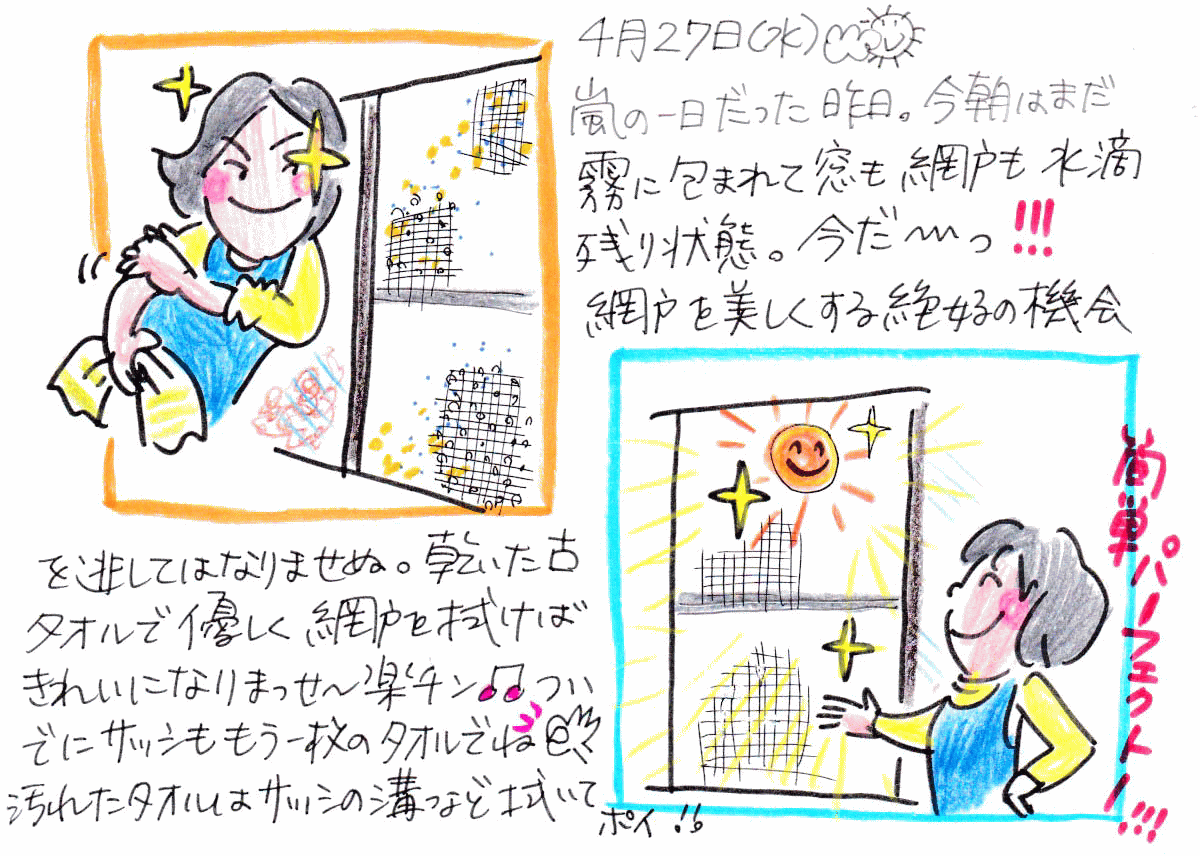 4月27日(水)
嵐の一日だった昨日。今朝はまだ
霧に包まれて窓も網戸も水滴
残り状態。今だ〜っ!!!
網戸を美しくする絶好の機会
を逃してはなりませぬ。乾いた古
タオルで優しく網戸を拭けば
きれいになりまっせ〜楽チン♫つい
でにサッシももう一枚のタオルでね
汚れたタオルはサッシの溝など拭いて
ポイ!!
簡単パーフェクト!!!!